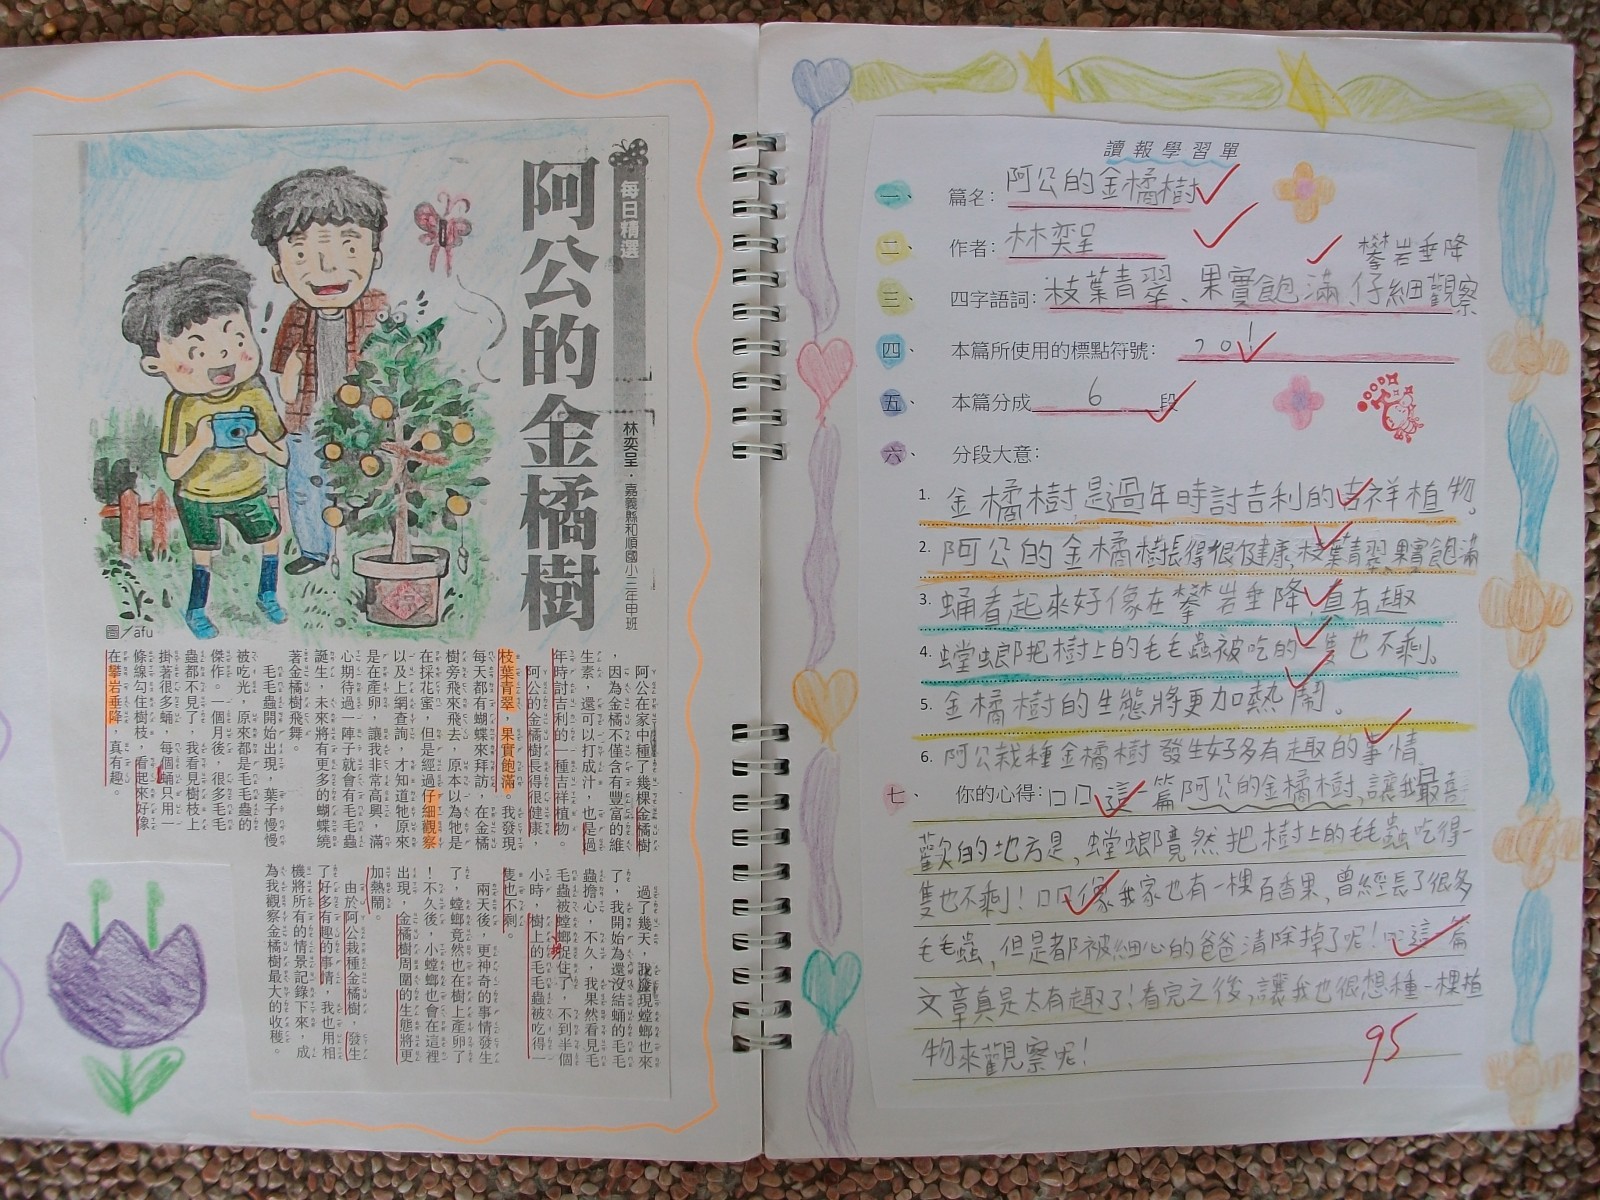 每日精選
阿公的金橘樹
林奕呈.嘉義縣和順國小三年甲班
圖／afu
阿公在家中種了幾棵金橘樹
，因為金橘不僅含有豐富的維
生素，還可以打成汁，也是過
年時討吉利的一種吉祥植物。
阿公的金橘樹長得很健康，
枝葉青翠，果實飽滿。我發現
每天都有蝴蝶來拜訪，在金橘
樹旁飛來飛去，原本以為牠是
在採花蜜，但是經過仔細觀察
以及上網查詢，才知道牠原來
是在產卵，讓我非常高興，滿
心期待過一陣子就會有毛毛蟲
誕生，未來將有更多的蝴蝶繞
著金橘樹飛舞。
毛毛蟲開始出現，葉子慢慢
被吃光，原來都是毛毛蟲的
傑作。一個月後，很多毛毛
蟲都不見了，我看見樹枝上
掛著很多蛹，每個蛹只用一
條線勾住樹枝，看起來好像
在攀岩垂降，真有趣。
過了幾天，我發現螳螂也來
了，我開始為還沒結蛹的毛毛
蟲擔心，不久，我果然看見毛
毛蟲被螳螂捉住了，不到半個
小時，樹上的毛毛蟲被吃得一
隻也不剩。
兩天後，更神奇的事情發生
了，螳螂竟然也在樹上產卵了
！不久後，小螳螂也會在這裡
出現，金橘樹周圍的生態將更
加熱鬧。
由於阿公栽種金橘樹，發生
了好多有趣的事情，我也用相
機將所有的情景記錄下來，成
為我觀察金橘樹最大的收穫。
讀報學習單
一、 篇名：阿公的金橘樹
二、 作者：林奕呈
攀岩垂降
三、 四字語詞：枝葉青翠、果實飽滿、仔細觀察
四、 本篇所使用的標點符號：，。！
五、 本篇分成 6 段
六、 分段大意：
1. 金橘樹是過年時討吉利的吉祥植物。
2. 阿公的金橘樹長得很健康，枝葉青翠果實飽滿
3. 蛹看起來好像在攀岩垂降，真有趣
4. 螳螂把樹上的毛毛蟲被吃的一隻也不剩。
5. 金橘樹的生態將更加熱鬧。
6. 阿公栽種金橘樹發生好多有趣的事情
七、 你的心得：口口這一篇阿公的金橘樹，讓我最喜
歡的地方是，螳螂竟然把樹上的毛毛蟲吃得一
隻也不剩！口口像我家也有一棵百香果，曾經長了很多
毛毛蟲，但是都被細心的爸爸清除掉了呢！口這一篇
文章真是太有趣了！看完之後，讓我也很想種一棵植
物來觀察呢！
95